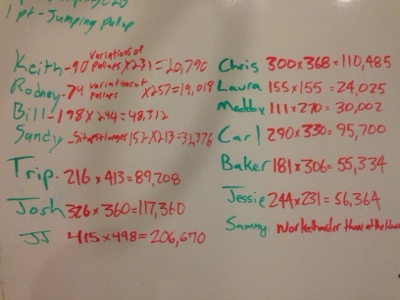 1 pt - Jumping pullup
Keith - 90 variations of pullups x 231 = 20,790
Rodney - 74 variations of pullups x 257 = 19,018
Bill - 198 x 244 = 48,312
Sandy - Situps + lunges 152 x 213 = 32,376
Trip - 216 x 413 = 89,208
Josh 326 x 360 = 117,360
JJ 415 x 498 = 206,670
Chris 300 x 368 = 110,485
Laura 155 x 155 = 24,025
Maddox 111 x 270 = 30,002
Carl 290 x 330 = 95,700
Baker 181 x 306 = 55,334
Jessie 244 x 231 = 56,364
Sammy Worked harder than all the